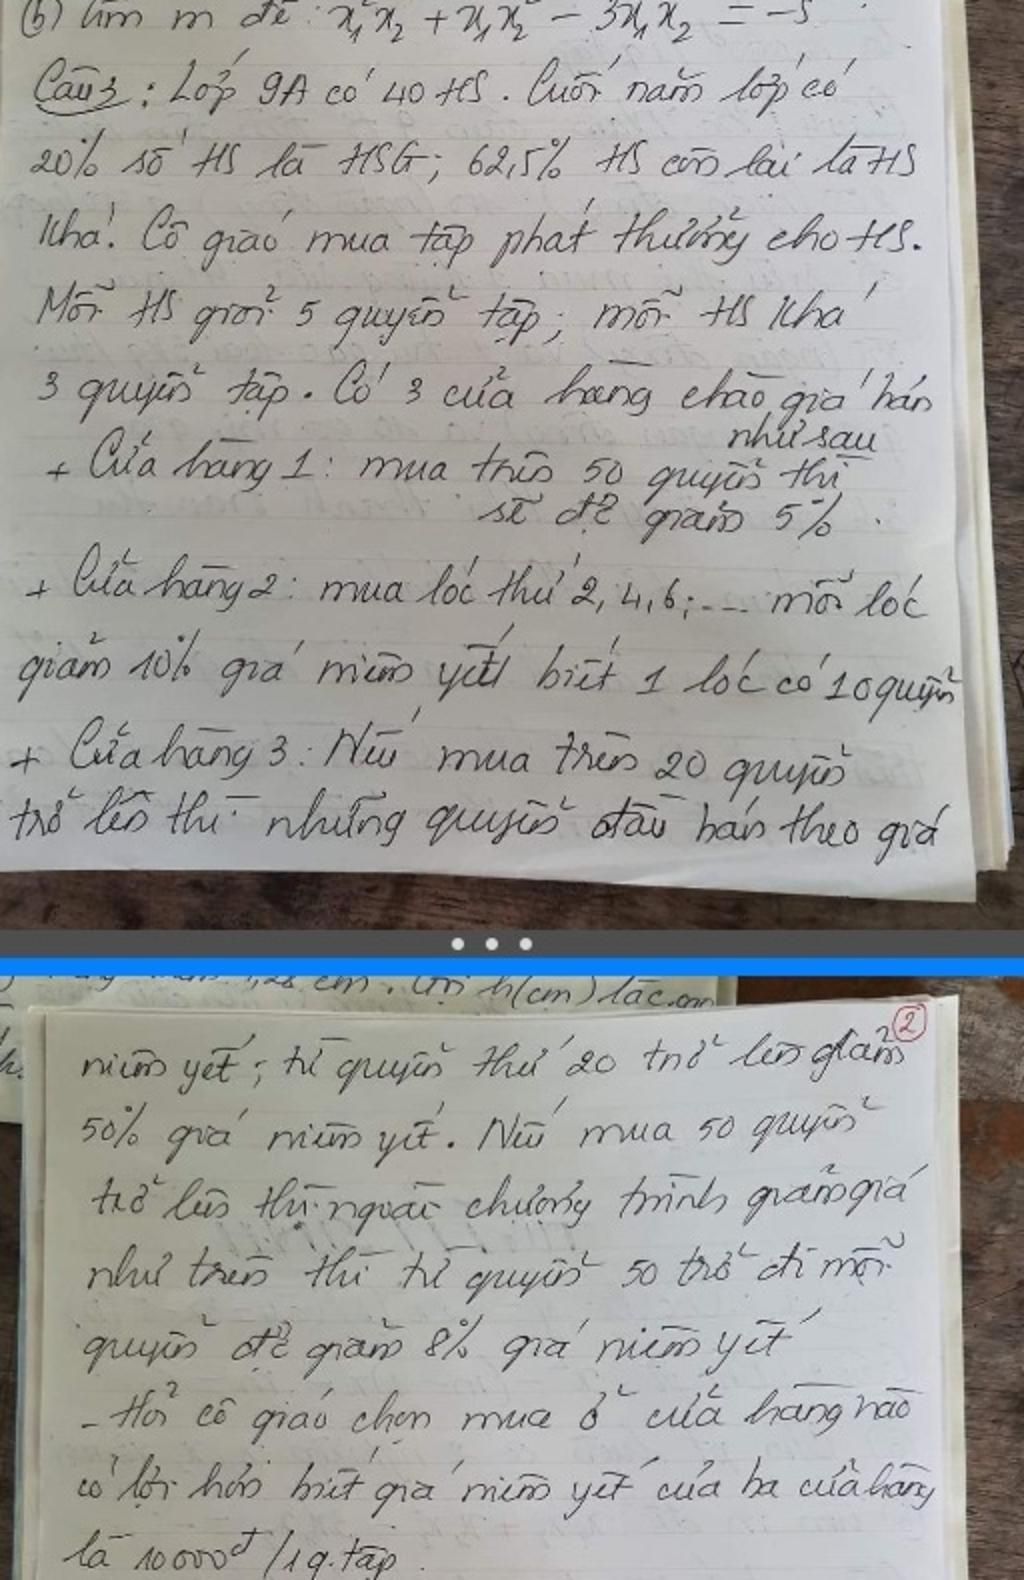 b) Tìm m để: x₁²x₂ + x₁x₂² - 3x₁x₂ = -5
Câu 3: Lớp 9A có 40 HS. Cuối năm lớp có
20% số HS là HSG; 62,5% HS còn lại là HS
khá. Cô giáo mua tập phát thưởng cho HS.
Mỗi HS giỏi 5 quyển tập; mỗi HS khá
3 quyển tập. Có 3 cửa hàng chào giá bán
như sau
+ Cửa hàng 1: mua trên 50 quyển thì
sẽ đc giảm 5%.
+ Cửa hàng 2: mua lốc thứ 2, 4, 6; .... mỗi lốc
giảm 10% giá niêm yết biết 1 lốc có 10 quyển
+ Cửa hàng 3: Nếu mua trên 20 quyển
trở lên thì những quyển đầu bán theo giá
1,28 cm. h(cm)
2
niêm yết; từ quyển thứ 20 trở lên giảm
50% giá niêm yết. Nếu mua 50 quyển
trở lên thì ngoài chương trình giảm giá
như trên thì từ quyển 50 trở đi mỗi
quyển đc giảm 8% giá niêm yết
- Hỏi cô giáo chọn mua ở cửa hàng nào
có lợi hơn biết giá niêm yết của ba cửa hàng
là 10000đ/1q. tập.